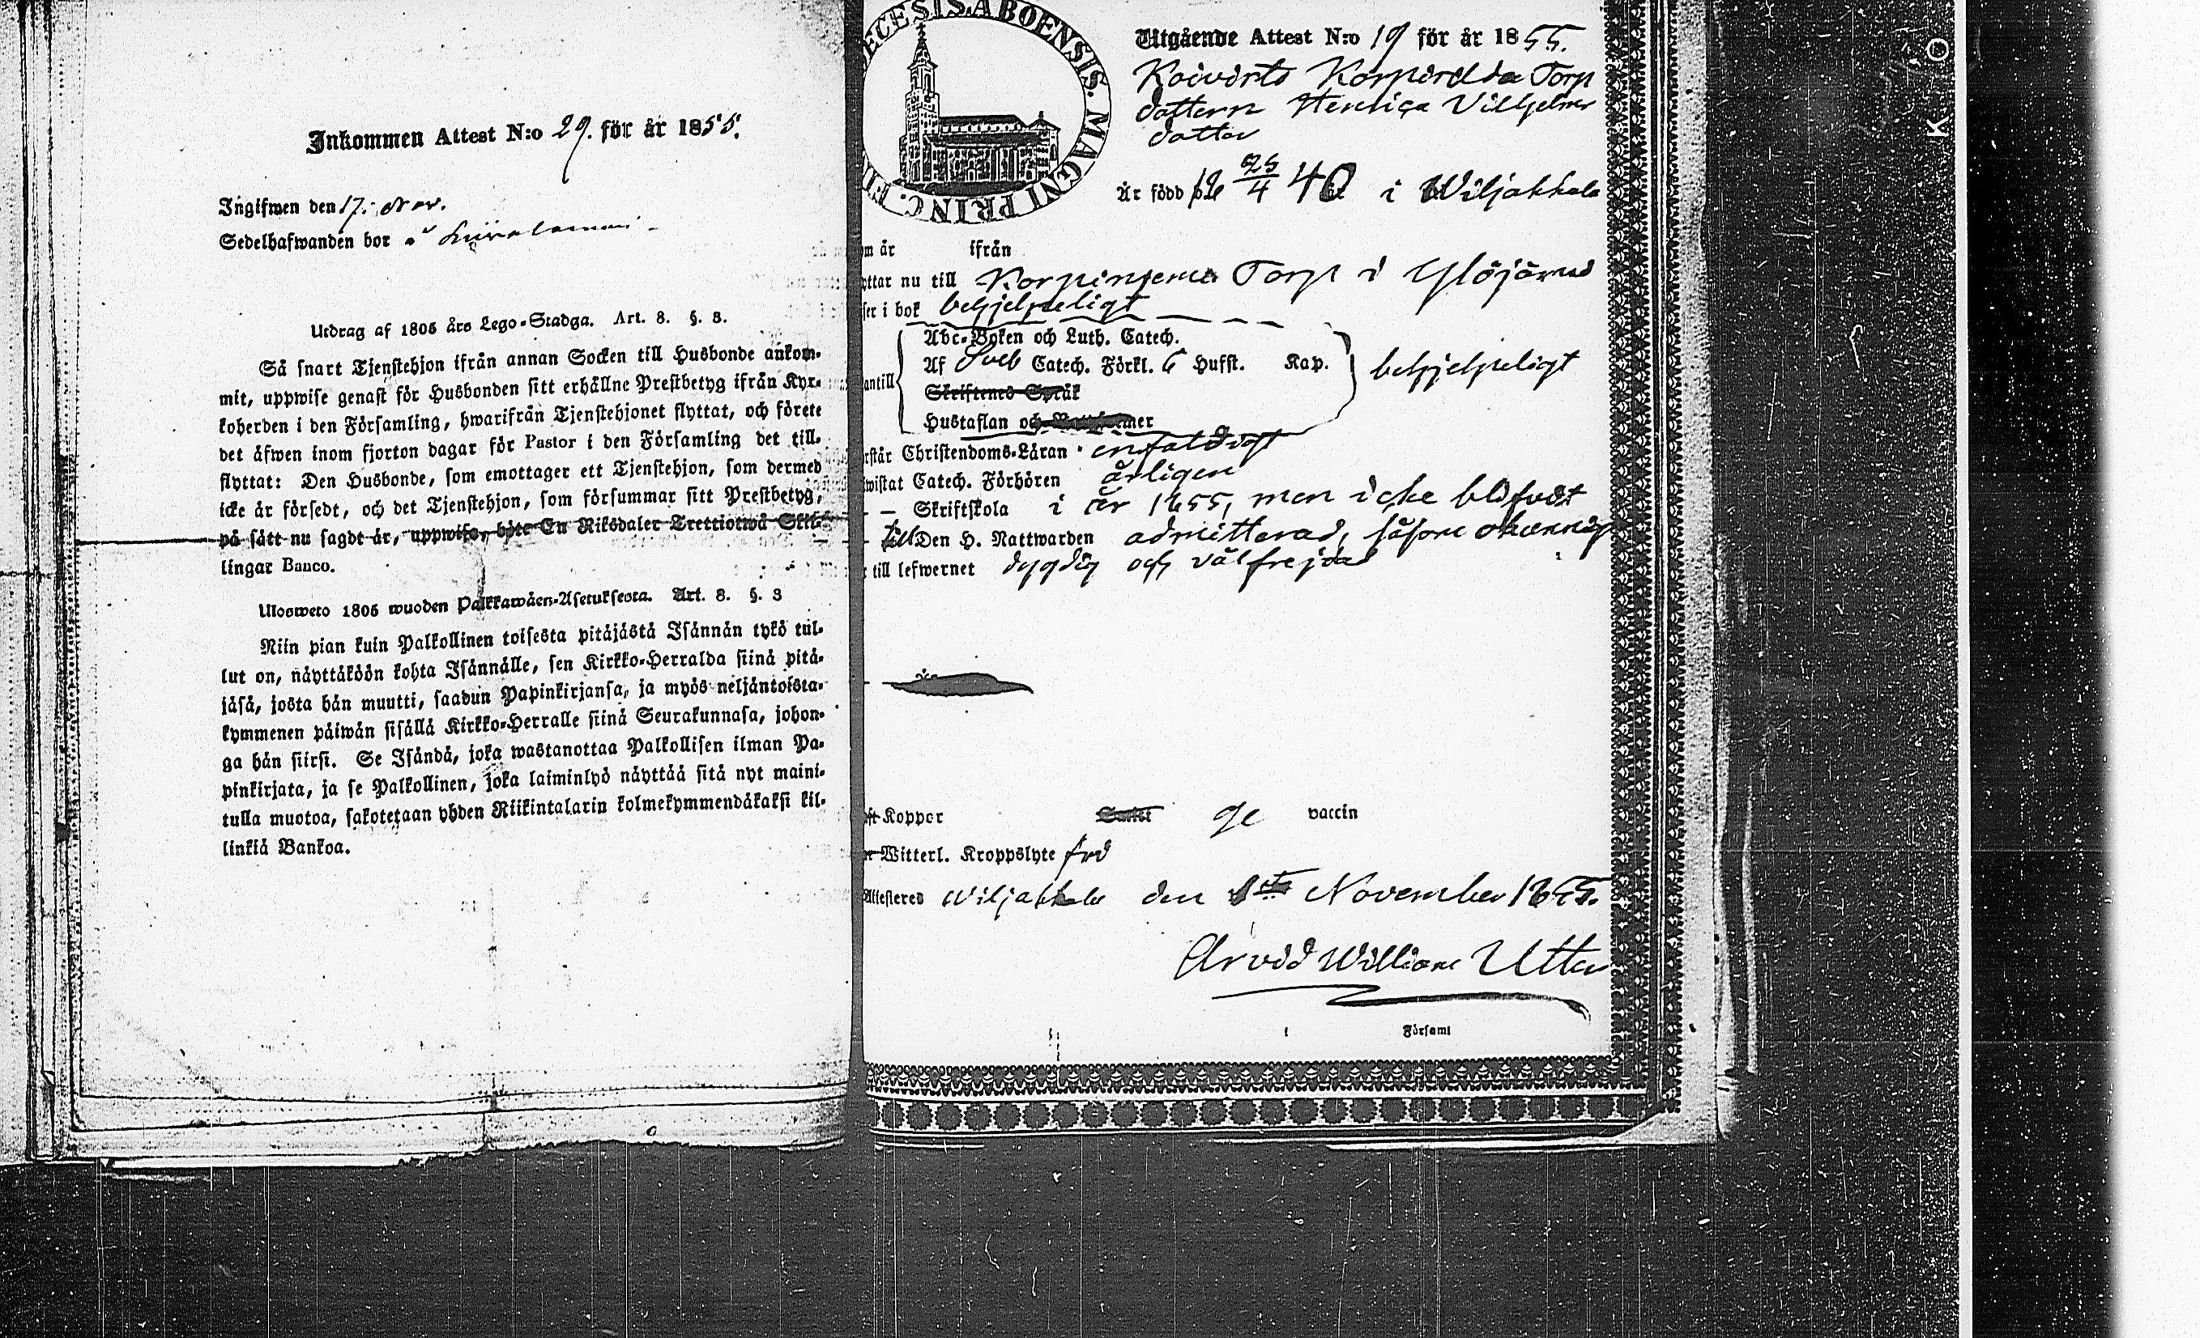 Inkommen Attest N:o 29. för år 1855.
Ingifwen den 17. Nov.
Sedelhafwanden bor å
Utdrag af 1805 års Lego-Stadga. Art. 8. §. 3.
Så snart Tjenstehjon ifrån annan Socken till Husbonde ankom-
mit, uppwise genast för Husbonden sitt erhållne Prestbetyg ifrån Kyr-
koherden i den Församling, hwarifrån Tjenstehjonet flyttat, och förete
det äfwen inom fjorton dagar för Pastor i den Församling det till-
flyttat: Den Husbonde, som emottager ett Tjenstehjon, som dermed
icke är försedt, och det Tjenstehjon, som försummar sitt Prestbetyg,
på sätt nu sagdt är, uppwisa, böte En Riksdaler Trettiotwå Skil-
lingar Banco.
Ulosweto 1805 wuoden Palkkawäen-Asetuksesta. Art. 8. §. 3
Niin pian kuin Palkollinen toisesta pitäjästä Isännän tykö tul-
lut on, näyttäköön kohta Isännälle, sen Kirkko-Herralda siinä pitä-
jäsä, josta hän muutti, saadun Papinkirjansa, ja myös neljäntoista-
kymmenen päiwän sisällä Kirkko-Herralle siinä Seurakunnasa, johon-
ga hän siirsi. Se Isändä, joka wastanottaa Palkollisen ilman Pa-
pinkirjata, ja se Palkollinen, joka laiminlyö näyttää sitä nyt maini-
tulla muotoa, sakotetaan yhden Riikintalarin kolmekymmendäkaksi kil-
linkiä Bankoa.
ECESIS. ABOENSIS. MAGNI PRINC. FI
Utgående Attest N:o 19 för år 1855.
Koivisto Torp
dottern Henrica Vilhelms
dotter
År född 18 25/4 40 i Wiljakkala
m är ifrån
yttar nu till Torp i Ylöjärvi
ser i bok behjelpeligt
Abc-Boken och Luth. Catech.
Af Sveb Catech. Förkl. 6 Hufst. Kap.
antill behjelpeligt
Skriftenes Språk
Hustaflan och
rstår Christendoms-Läran enfaldigt
wistat Catech. Förhören årligen
Skriftskola i år 1855, men icke blifvit
till Den H. Nattwarden admitterad, såsom okunnig
till lefwernet dygdig och välfrejdad
Koppor ge vaccin
Witterl. Kroppslyte fri
Attesteras Wiljakkala den November 1855.
Arvid William Utter
Församl